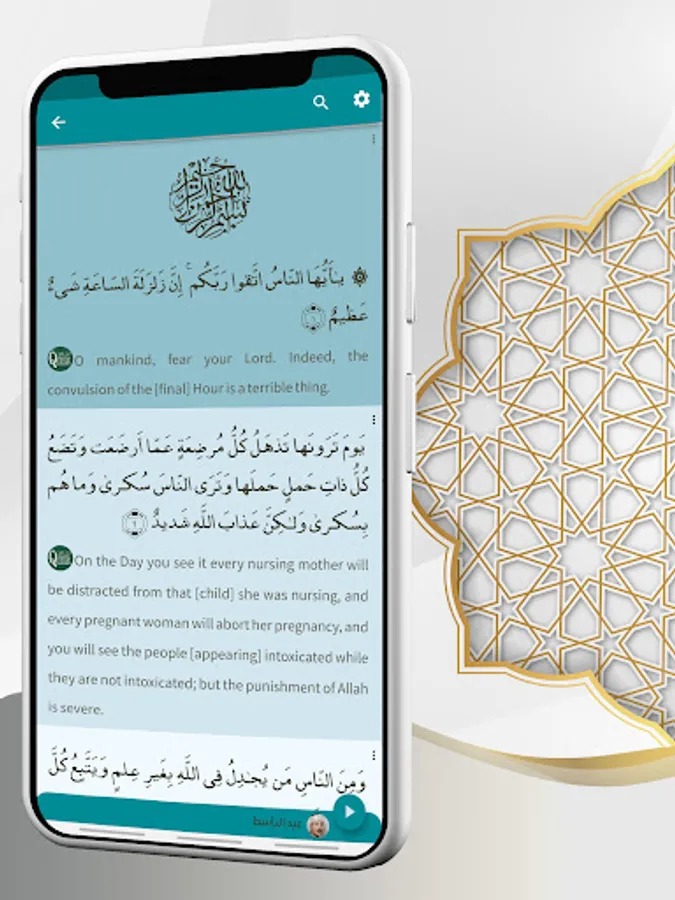 بسم الله الرحمن الرحيم
۞ يـٰأَيُّهَا النّاسُ اتَّقوا رَبَّكُم ۚ إِنَّ زَلزَلَةَ السّاعَةِ شَىءٌ
عَظيمٌ ١
O mankind, fear your Lord. Indeed, the
convulsion of the [final] Hour is a terrible thing.
يَومَ تَرَونَها تَذهَلُ كُلُّ مُرضِعَةٍ عَمّا أَرضَعَت وَتَضَعُ
كُلُّ ذاتِ حَملٍ حَملَها وَتَرَى النّاسَ سُكـٰرىٰ وَما هُم
بِسُكـٰرىٰ وَلـٰكِنَّ عَذابَ اللَّهِ شَديدٌ ٢
On the Day you see it every nursing mother will
be distracted from that [child] she was nursing, and
every pregnant woman will abort her pregnancy, and
you will see the people [appearing] intoxicated while
they are not intoxicated; but the punishment of Allah
is severe.
وَمِنَ النّاسِ مَن يُجـٰدِلُ فِى اللَّهِ بِغَيرِ عِلمٍ وَيَتَّبِعُ كُلَّ
عبد الباسط